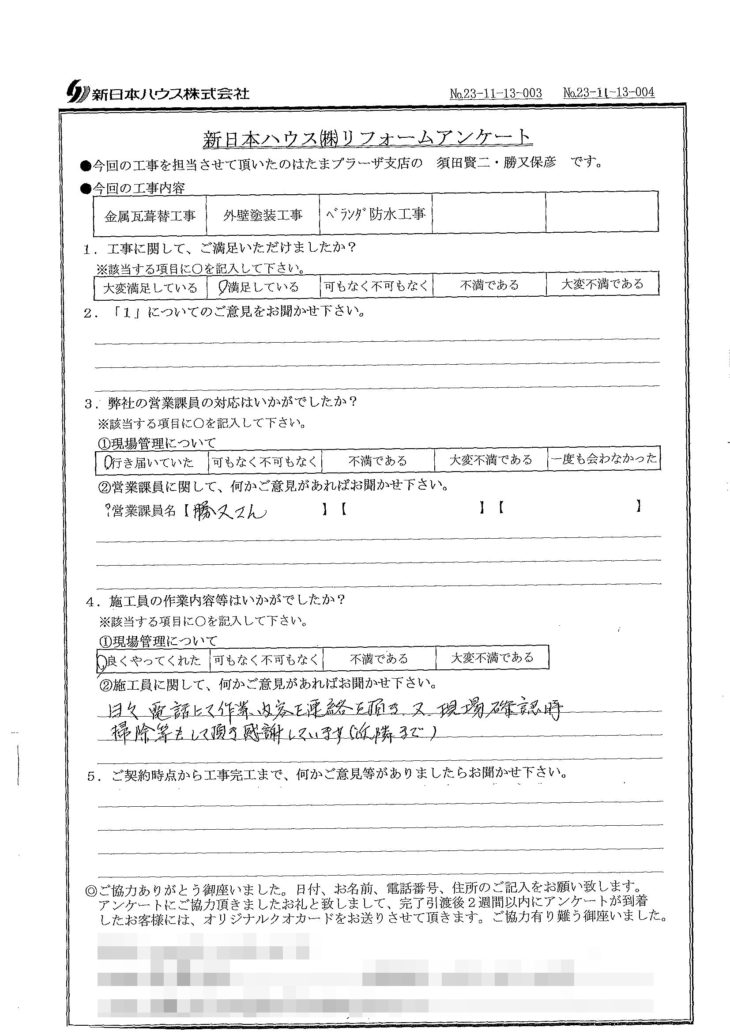 新日本ハウス株式会社 №23-11-13-003 №23-11-13-004
新日本ハウス㈱リフォームアンケート
●今回の工事を担当させて頂いたのはたまプラーザ支店の 須田賢二・勝又保彦 です。
●今回の工事内容
金属瓦葺替工事 外壁塗装工事 ベランダ防水工事
1．工事に関して、ご満足いただけましたか？
※該当する項目に〇を記入して下さい。
大変満足している 〇満足している 可もなく不可もなく 不満である 大変不満である
2．「1」についてのご意見をお聞かせ下さい。
3．弊社の営業課員の対応はいかがでしたか？
※該当する項目に〇を記入して下さい。
①現場管理について
〇行き届いていた 可もなく不可もなく 不満である 大変不満である 一度も会わなかった
②営業課員に関して、何かご意見があればお聞かせ下さい。
?営業課員名【勝又さん 】【 】【 】
4．施工員の作業内容等はいかがでしたか？
※該当する項目に〇を記入して下さい。
①現場管理について
〇良くやってくれた 可もなく不可もなく 不満である 大変不満である
②施工員に関して、何かご意見があればお聞かせ下さい。
日々電話にて作業内容を連絡を頂き、又、現場確認時
掃除等もして頂き感謝しています(近隣まで)
5．ご契約時点から工事完工まで、何かご意見等がありましたらお聞かせ下さい。
◎ご協力ありがとう御座いました。日付、お名前、電話番号、住所のご記入をお願い致します。
アンケートにご協力頂きましたお礼と致しまして、完了引渡後2週間以内にアンケートが到着
したお客様には、オリジナルクオカードをお送りさせて頂きます。ご協力有り難う御座いました。